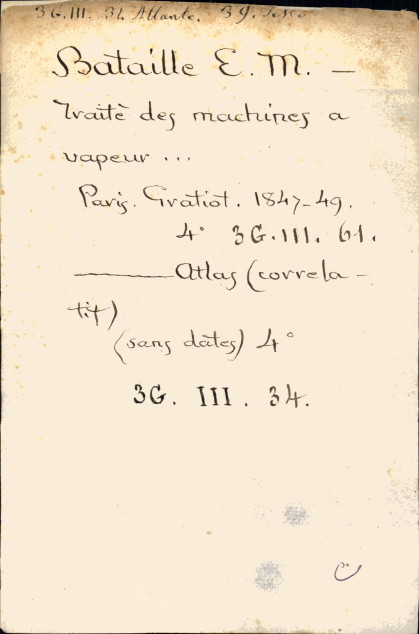 36.III. 34 Atlante. 39. Testo
Bataille E. M. —
Traitè des machines a
vapeur ...
Paris. Gratiot. 1847-49.
4° 36.III. 61.
——— Atlas (correla-
tif)
(sans dates) 4°
36. III. 34.